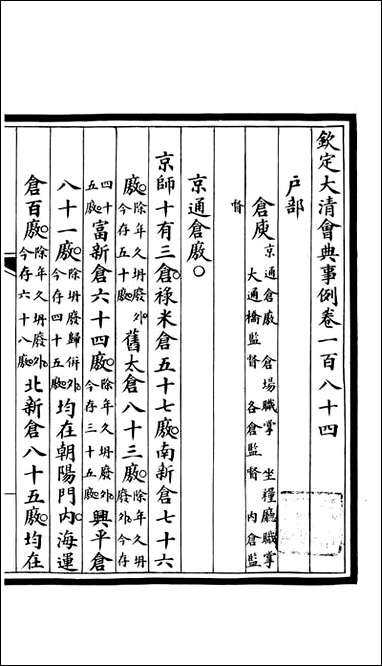 欽定大清會典事例卷一百八十四
戶部
倉庾京通倉廒 倉場職掌 坐糧廳職掌 大通橋監督 各倉監督 內倉監督
京通倉廒○
京師十有三倉祿米倉五十七廒南新倉七十六
廒除年久坍廢外今存五十廒舊太倉八十三廒除年久坍廢外今存
四十五廒富新倉六十四廒除年久坍廢外今存三十五廒興平倉
八十一廒除年久坍廢歸併外今存四十五廒均在朝陽門內海運
倉百廒除年久坍廢外今存六十八廒北新倉八十五廒均在